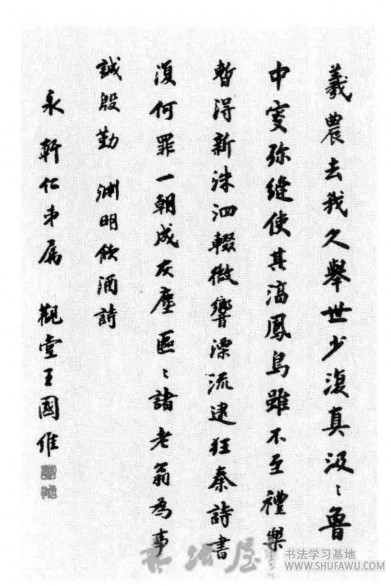 羲農去我久舉世少復真汲〻魯
中叟弥縫使其淳鳳鳥雖不至禮樂
暫淂新洙泗輟微響漂流逮狂秦詩書
復何罪一朝成灰塵區〻諸老翁為事
誠殷勤 淵明飲酒詩
永軒仁弟属 觀堂王國維
书法屋
书法学习基地
WWW.SHUFAWU.COM